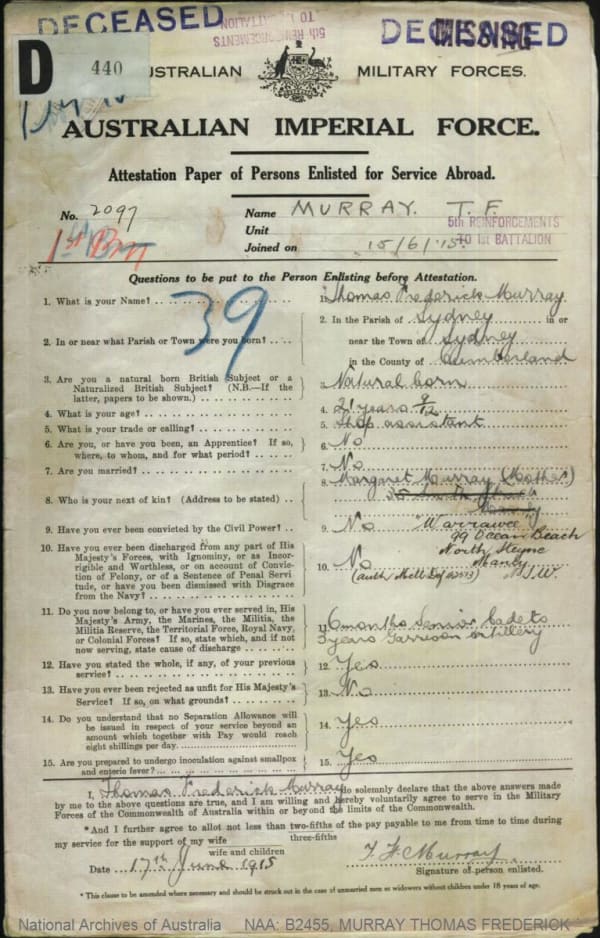 DECEASED
5th REINFORCEMENTS
TO 1st BATTALION
DECEASED
MISSING
D 440
AUSTRALIAN MILITARY FORCES.
AUSTRALIAN IMPERIAL FORCE.
Attestation Paper of Persons Enlisted for Service Abroad.
No. 2097
Name MURRAY. T. F.
1st Bn
Unit 5th REINFORCEMENTS
TO 1st BATTALION
Joined on 15/6/15.
Questions to be put to the Person Enlisting before Attestation.
39
1. What is your Name? 1. Thomas Frederick Murray
2. In or near what Parish or Town were you born? 2. In the Parish of Sydney in or
near the Town of Sydney
in the County of Cumberland
3. Are you a natural born British Subject or a
Naturalized British Subject? (N.B.—If the
latter, papers to be shown.) 3. Natural born
4. What is your age? 4. 21 years 9/12
5. What is your trade or calling? 5. Shop assistant
6. Are you, or have you been, an Apprentice? If so,
where, to whom, and for what period? 6. No
7. Are you married? 7. No
8. Who is your next of kin? (Address to be stated) 8. Margaret Murray (Mother)
"Warrawee"
99 Ocean Beach
North Steyne
Manly
N.S.W.
9. Have you ever been convicted by the Civil Power? 9. No
10. Have you ever been discharged from any part of His
Majesty's Forces, with Ignominy, or as Incor-
rigible and Worthless, or on account of Convic-
tion of Felony, or of a Sentence of Penal Servi
tude, or have you been dismissed with Disgrace
from the Navy? 10. No
11. Do you now belong to, or have you ever served in, His
Majesty's Army, the Marines, the Militia, the
Militia Reserve, the Territorial Force, Royal Navy,
or Colonial Forces? If so, state which, and if not
now serving, state cause of discharge 11. 6 months Senior Cadets
3 years Garrison Artillery
12. Have you stated the whole, if any, of your previous
service? 12. Yes
13. Have you ever been rejected as unfit for His Majesty's
Service? If so, on what grounds? 13. No
14. Do you understand that no Separation Allowance will
be issued in respect of your service beyond an
amount which together with Pay would reach
eight shillings per day 14. Yes
15. Are you prepared to undergo inoculation against smallpox
and enteric fever? 15. Yes
I, Thomas Frederick Murray do solemnly declare that the above answers made
by me to the above questions are true, and I am willing and hereby voluntarily agree to serve in the Military
Forces of the Commonwealth of Australia within or beyond the limits of the Commonwealth.
*And I further agree to allot not less than two-fifths of the pay payable to me from time to time during
three-fifths
my service for the support of my wife
wife and children
Date 17th June 1915
T F Murray
Signature of person enlisted.
* This clause to be amended where necessary and should be struck out in the case of unmarried men or widowers without children under 18 years of age.
National Archives of Australia NAA: B2455, MURRAY THOMAS FREDERICK